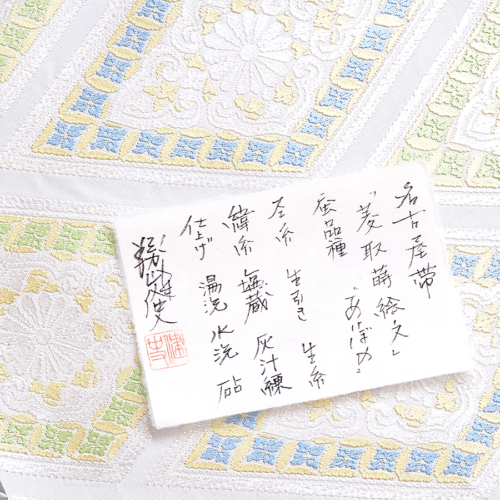 名古屋帯
「菱取蒔絵文」
蚕品種 「あけぼの」
経糸 生引き 生糸
緯糸 塩蔵 灰汁練
仕上げ 湯洗 水洗 砧